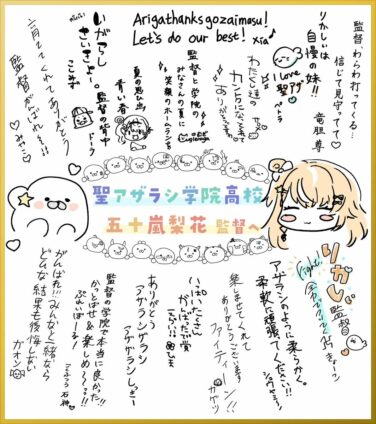 Arigathanksgozaimasu!
Let's do our best! xia♪
監督、わらわ打ってくる…
信じて見守ってて♡
竜胆尊
りかしぃは
自慢の妹!!
I Love
聖アザ♡
ペトラ
わたくし達の
カントクになってくれて
ありがとうですわ
監督と学院の
みなさんの夏に
笑顔のホームランを
夏の思い出
青い春
いがらし
さいきょー。
監督の背中
ドーラ
こもり
育ててくれてありがとう
監督がんばれぇ!!
♡みゃ
聖アザラシ学院高校
五十嵐梨花 監督へ
リカピ 監督
fight
アザラシのように柔らか。
柔軟に頑張ってください!!
楽しませてくれて
ありがとうございます
ファイティーン!!
いっぱいたくさん
がんばったで賞
えらい!!
ありがとう
アザラシザラシ
アゲザラシしぎー
監督の学院で本当に良かった!!
かっとばせ&楽しめ~っ!!
ぷれいぼーる!
がんばれ!!みんなと一緒なら
どんな結果も後悔しない
ガオン